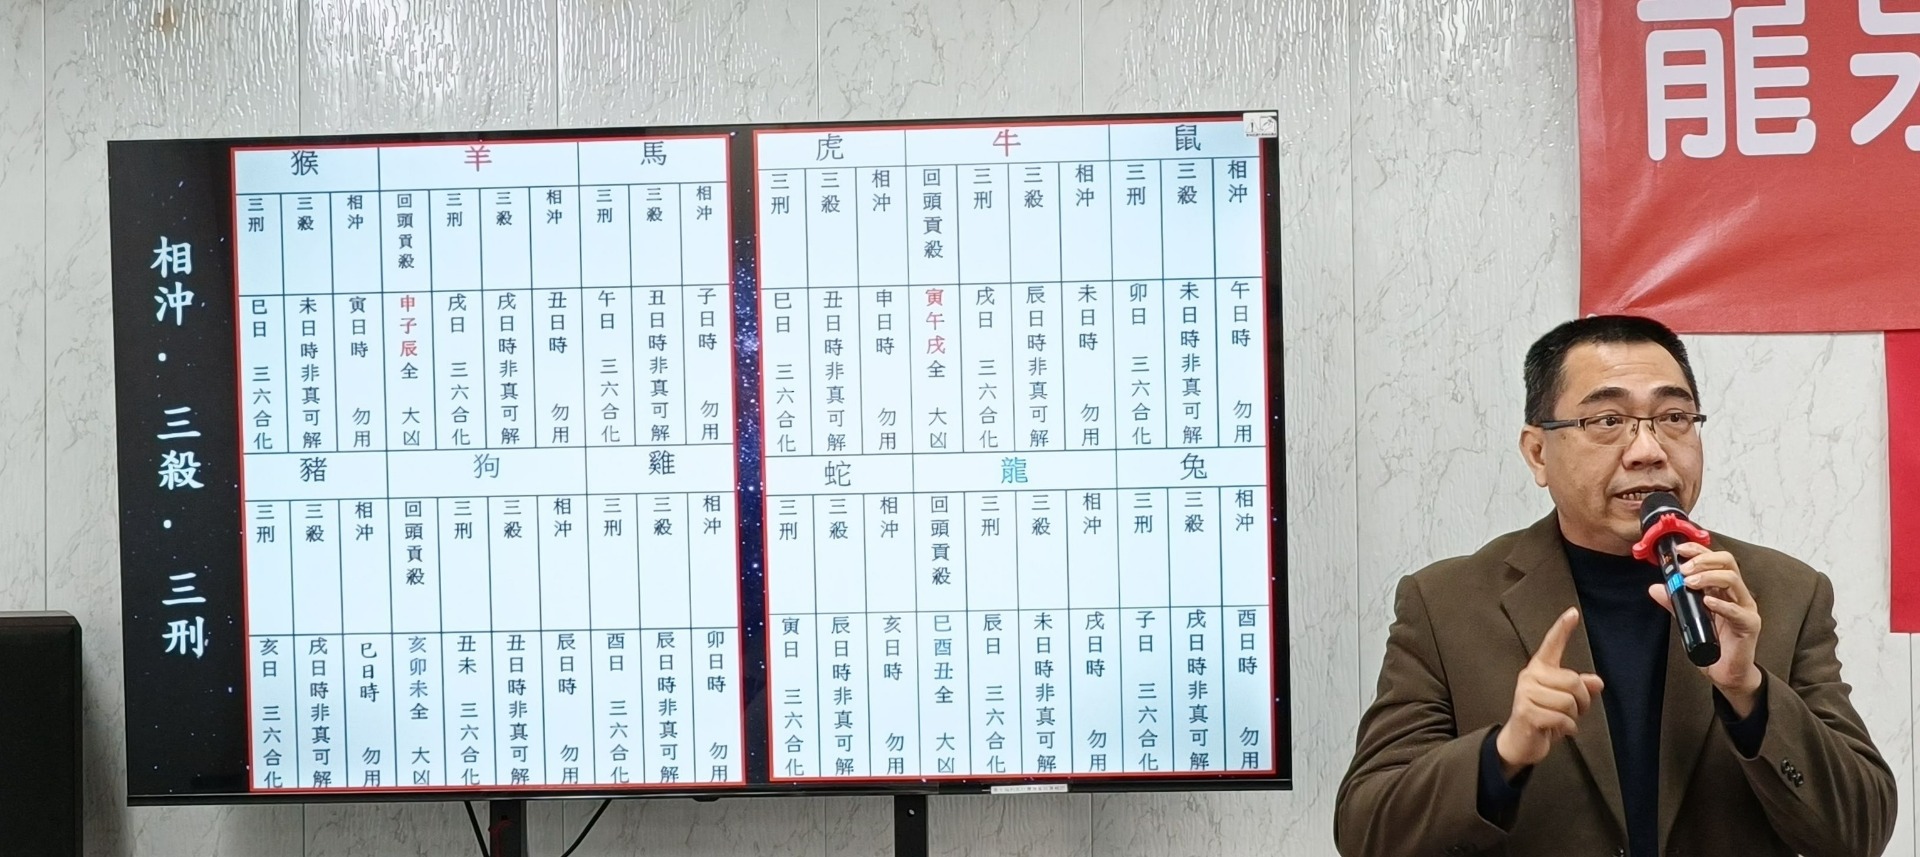 龍
相沖．三殺．三刑
鼠
相沖
午日時 勿用
三殺
未日時非真可解
三刑
卯日 三六合化
牛
相沖
未日時 勿用
三殺
辰日時非真可解
三刑
戌日 三六合化
回頭貢殺
寅午戌全 大凶
虎
相沖
申日時 勿用
三殺
丑日時非真可解
三刑
巳日 三六合化
兔
相沖
酉日時 勿用
三殺
戌日時非真可解
三刑
子日 三六合化
龍
相沖
戌日時 勿用
三殺
未日時非真可解
三刑
辰日 三六合化
回頭貢殺
巳酉丑全 大凶
蛇
相沖
亥日時 勿用
三殺
辰日時非真可解
三刑
寅日 三六合化
馬
相沖
子日時 勿用
三殺
丑日時非真可解
三刑
午日 三六合化
羊
相沖
丑日時 勿用
三殺
戌日時非真可解
三刑
戌日 三六合化
回頭貢殺
申子辰全 大凶
猴
相沖
寅日時 勿用
三殺
未日時非真可解
三刑
巳日 三六合化
雞
相沖
卯日時 勿用
三殺
辰日時非真可解
三刑
酉日 三六合化
狗
相沖
辰日時 勿用
三殺
丑日時非真可解
三刑
丑未 三六合化
回頭貢殺
亥卯未全 大凶
豬
相沖
巳日時 勿用
三殺
戌日時非真可解
三刑
亥日 三六合化